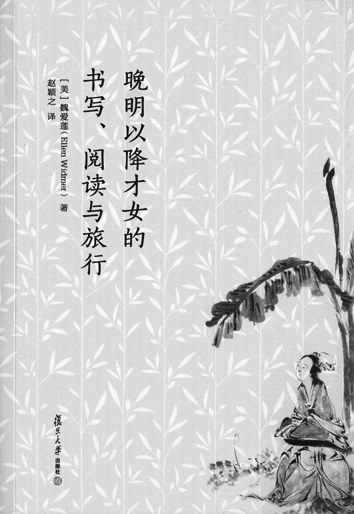 晚明以降才女的
书写、阅读与旅行
［美］魏爱莲（Ellen Widmer）著
赵颖之 译
復旦大學
出版社